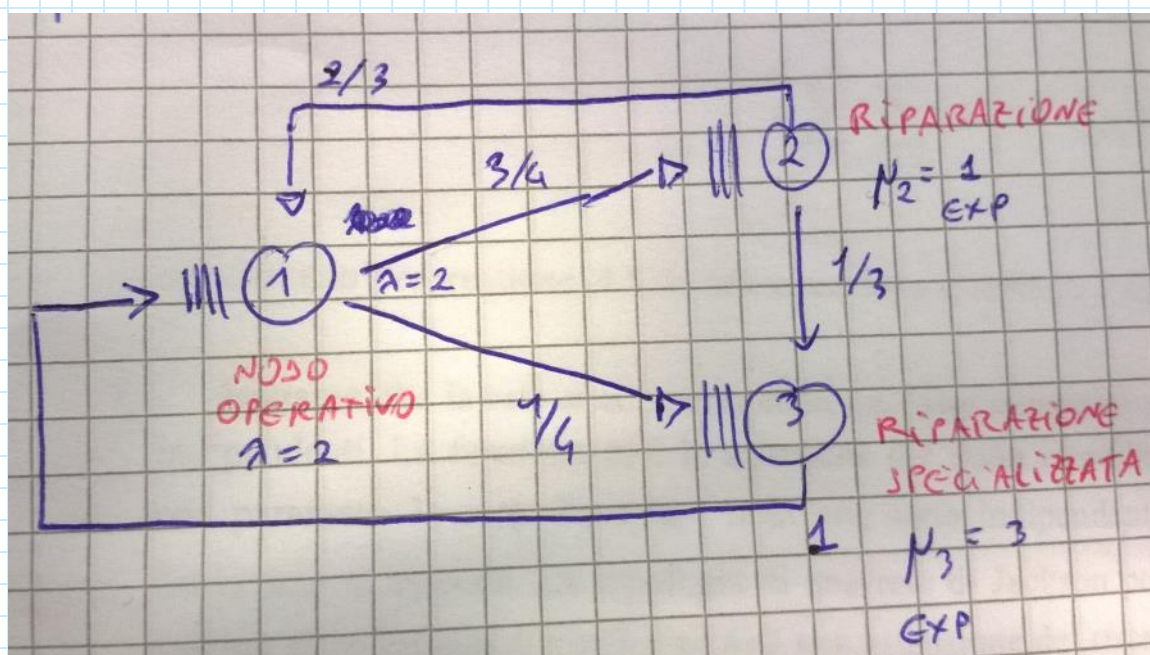 2/3
RIPARAZIONE
2
3/4
μ2 = 1
EXP
1
λ=2
1/3
NODO
OPERATIVO
λ=2
1/4
3
RIPARAZIONE
SPECIALIZZATA
1
μ3 = 3
EXP